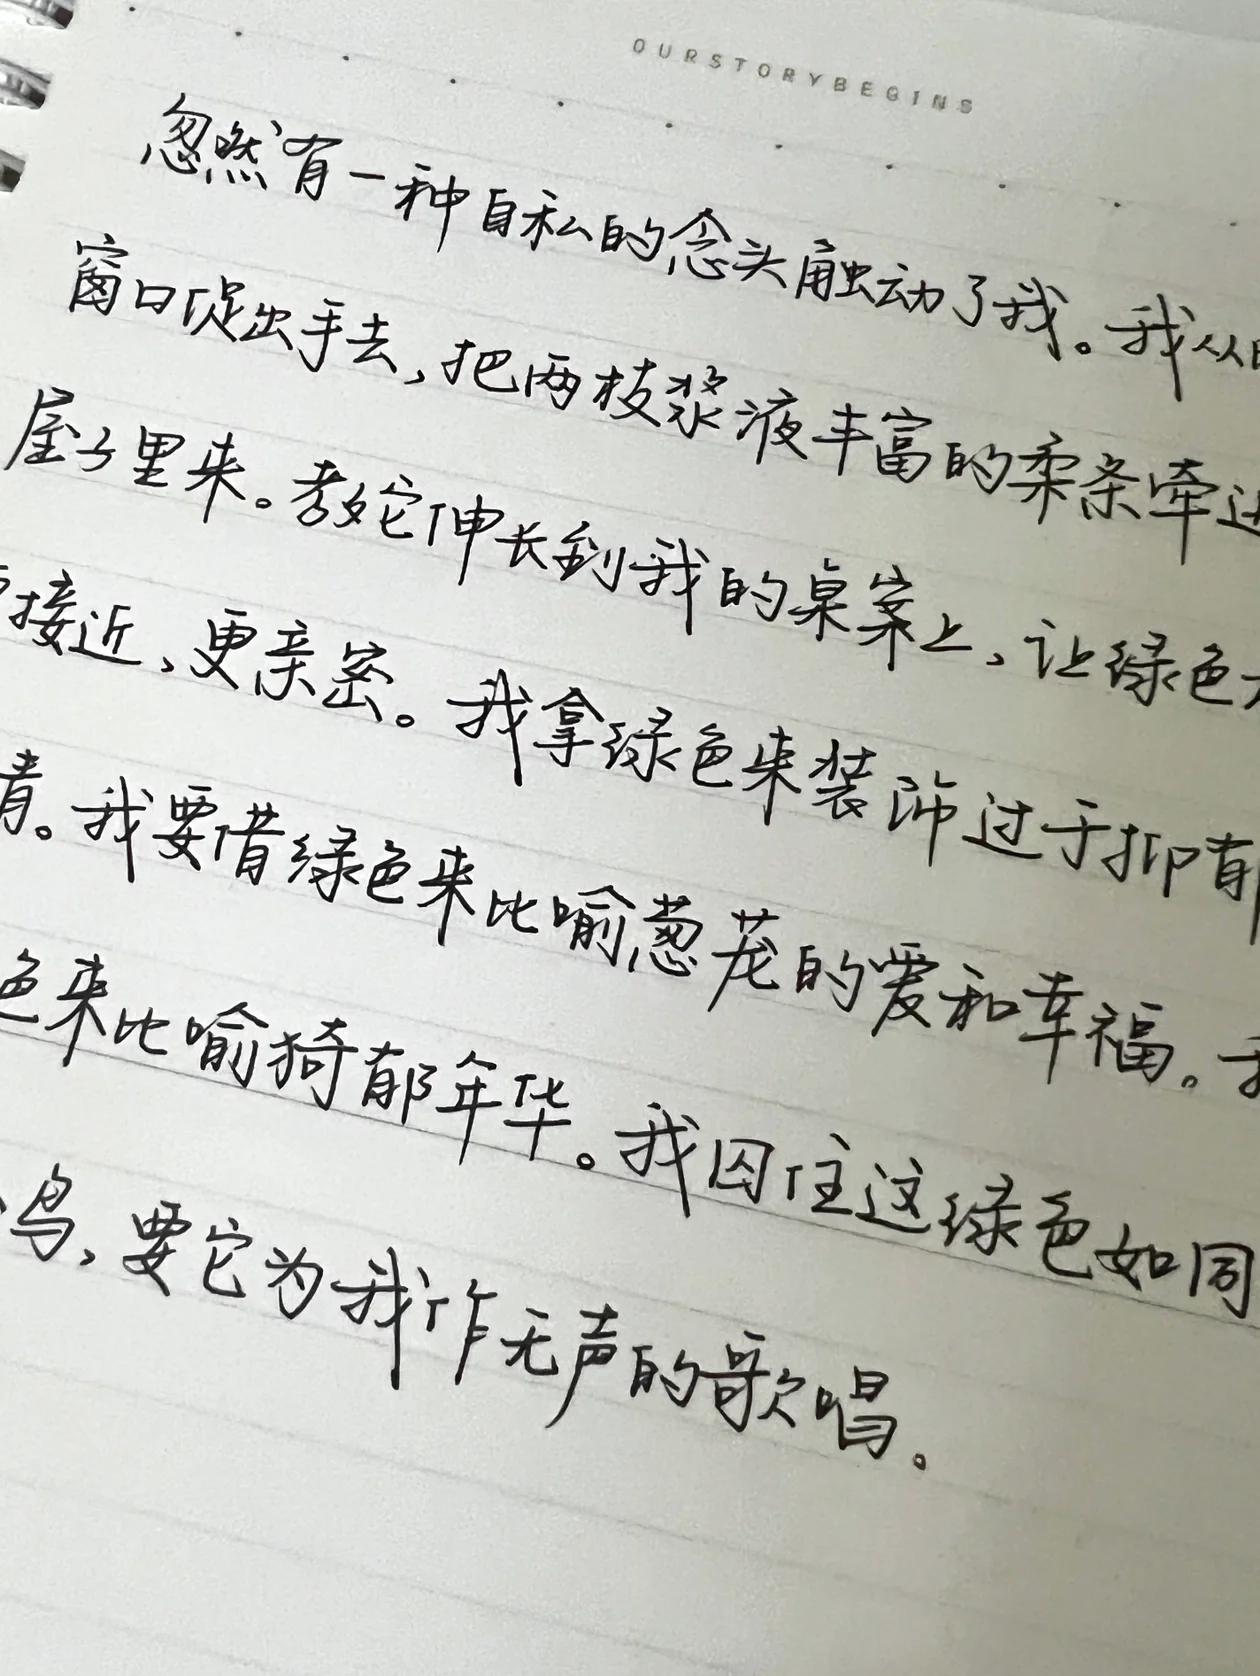 OURSTORYBEGINS
忽然有一种自私的念头触动了我。我从
窗口促出手去,把两枝浆液丰富的柔条牵进
屋子里来。教它伸长到我的桌案上,让绿色
接近,更亲密。我拿绿色来装饰过于抑郁
。我要借绿色来比喻葱茏的爱和幸福。我
色来比喻猗郁年华。我囚住这绿色如同
鸟,要它为我作无声的歌唱。